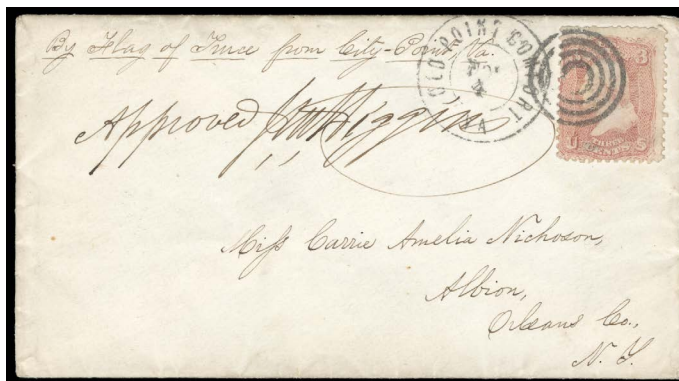 By Flag of Truce from City-Point, Va.
OLD POINT COMFORT
VA
4
3
U S
CENTS
Approved Higgins
Miss Carrie Amelia Nichoson,
Albion,
Orleans Co.,
N. Y.